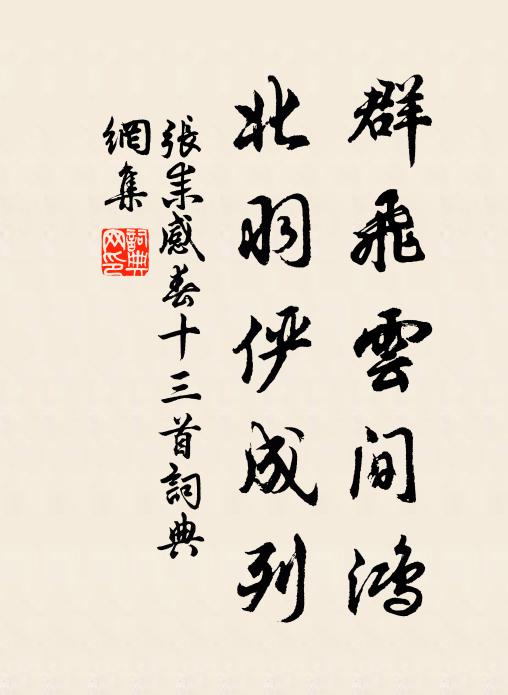 群飛雲間鴻
北羽俨成列
張耒感春十三首詞典
網集
詞典網印